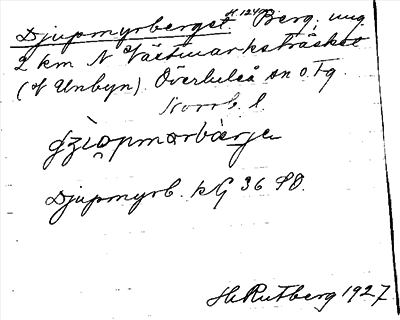 Djupmyrberget H 124,9 Berg, ung.
2 km N of Västmarksträsket
(of Unbyn). Överluleå sn o. Tg.
Norrb. l
Djupmyrb. kG 36 SO.
H. Rutberg 1927